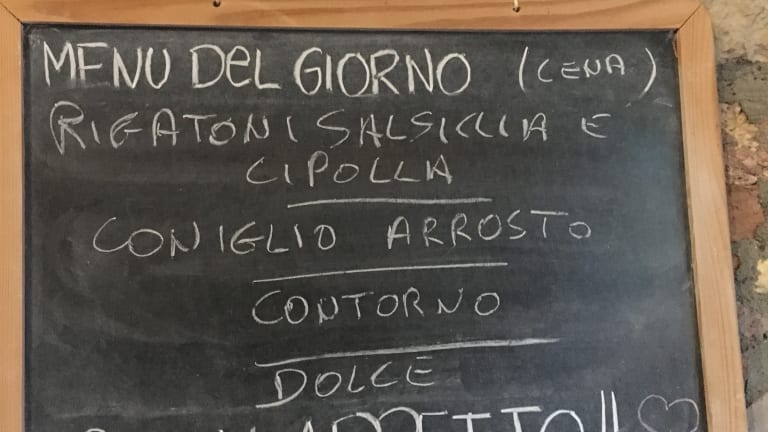 MENU DEL GIORNO (CENA)
RIGATONI SALSICCIA E
CIPOLLA
CONIGLIO ARROSTO
CONTORNO
DOLCE
APPETITO!!